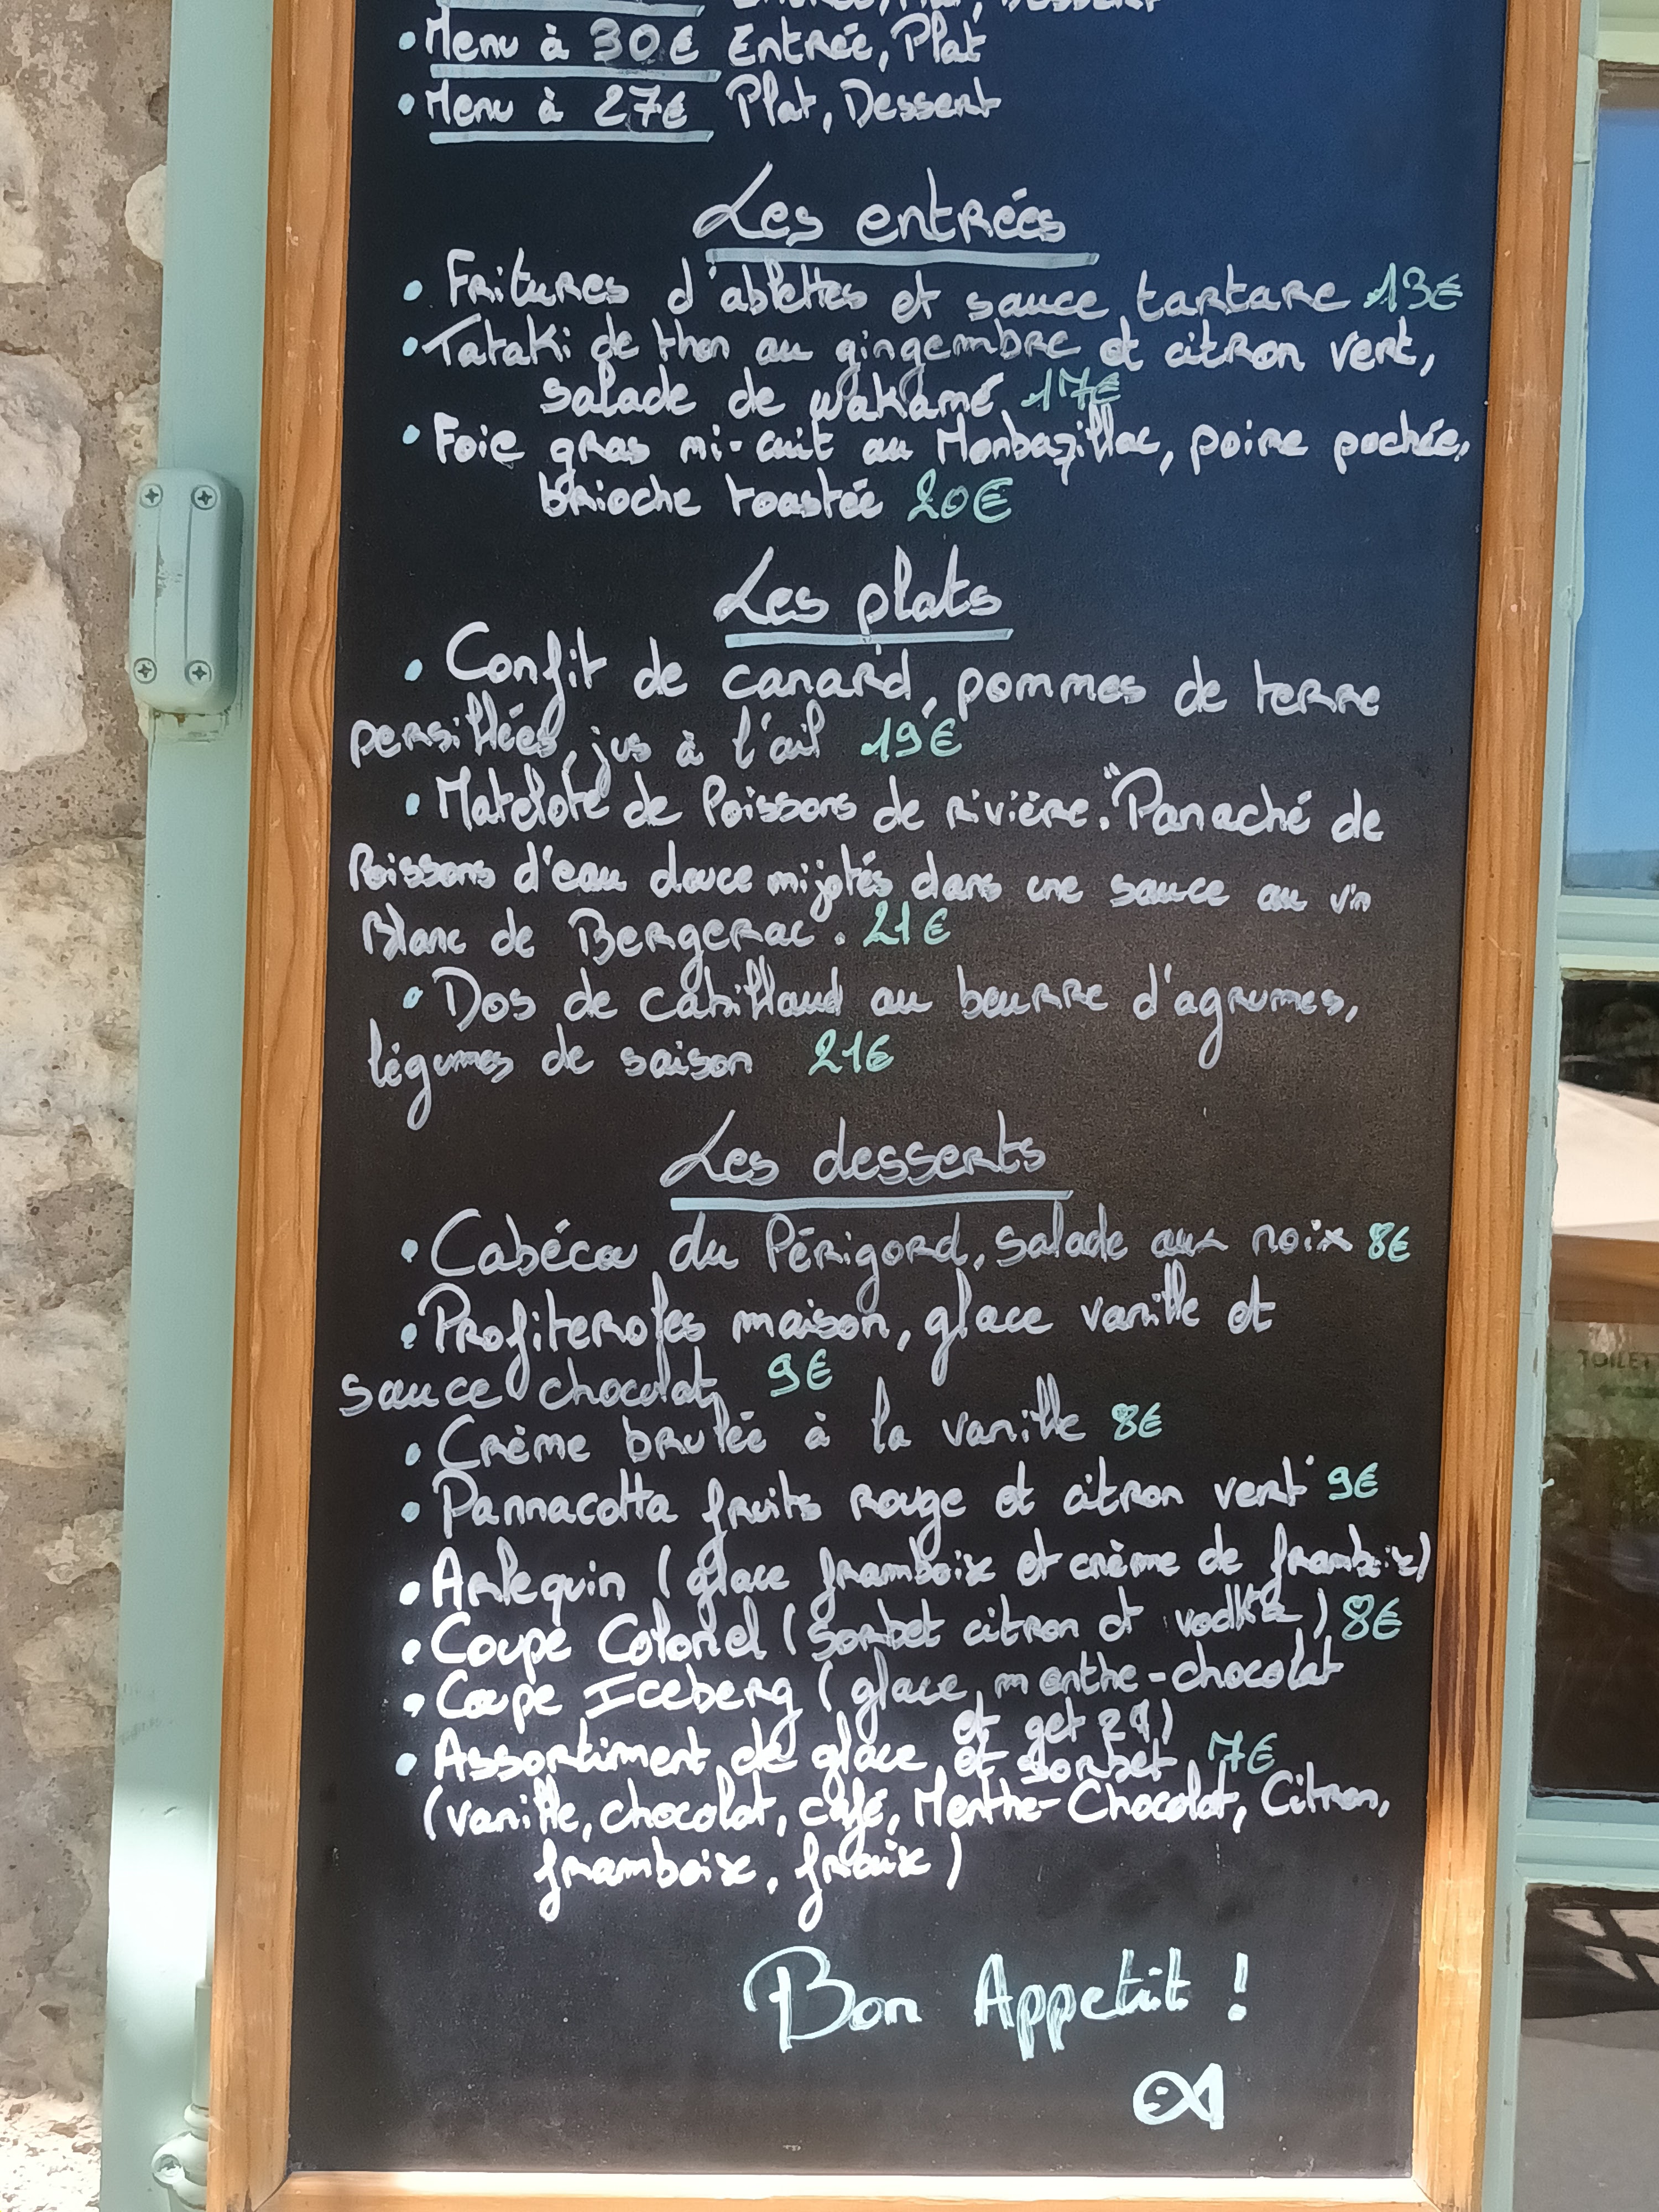 Entrée, Plat, Dessert
• Menu à 30€ Entrée, Plat
• Menu à 27€ Plat, Dessert
Les entrées
• Fritures d'ablettes et sauce tartare 13€
• Tataki de thon au gingembre et citron vert,
salade de wakamé 17€
• Foie gras mi-cuit au Monbazillac, poire pochée,
brioche toastée 20€
Les plats
• Confit de canard, pommes de terre
persillées, jus à l'ail 19€
• Matelote de Poissons de rivière. "Panaché de
Poissons d'eau douce mijotés dans une sauce au vin
Blanc de Bergerac". 21€
• Dos de cabillaud au beurre d'agrumes,
légumes de saison 21€
Les desserts
• Cabécou du Périgord, salade aux noix 8€
• Profiteroles maison, glace vanille et
sauce chocolat 9€
• Crème brulée à la vanille 8€
• Pannacotta fruits rouge et citron vert 9€
• Arlequin (glace framboise et crème de framboise)
• Coupe Colonel (sorbet citron et vodka) 8€
• Coupe Iceberg (glace menthe-chocolat
et get 27)
• Assortiment de glace et sorbet 7€
(vanille, chocolat, café, Menthe-Chocolat, Citron,
framboise, fraise)
Bon Appetit !
TOILET